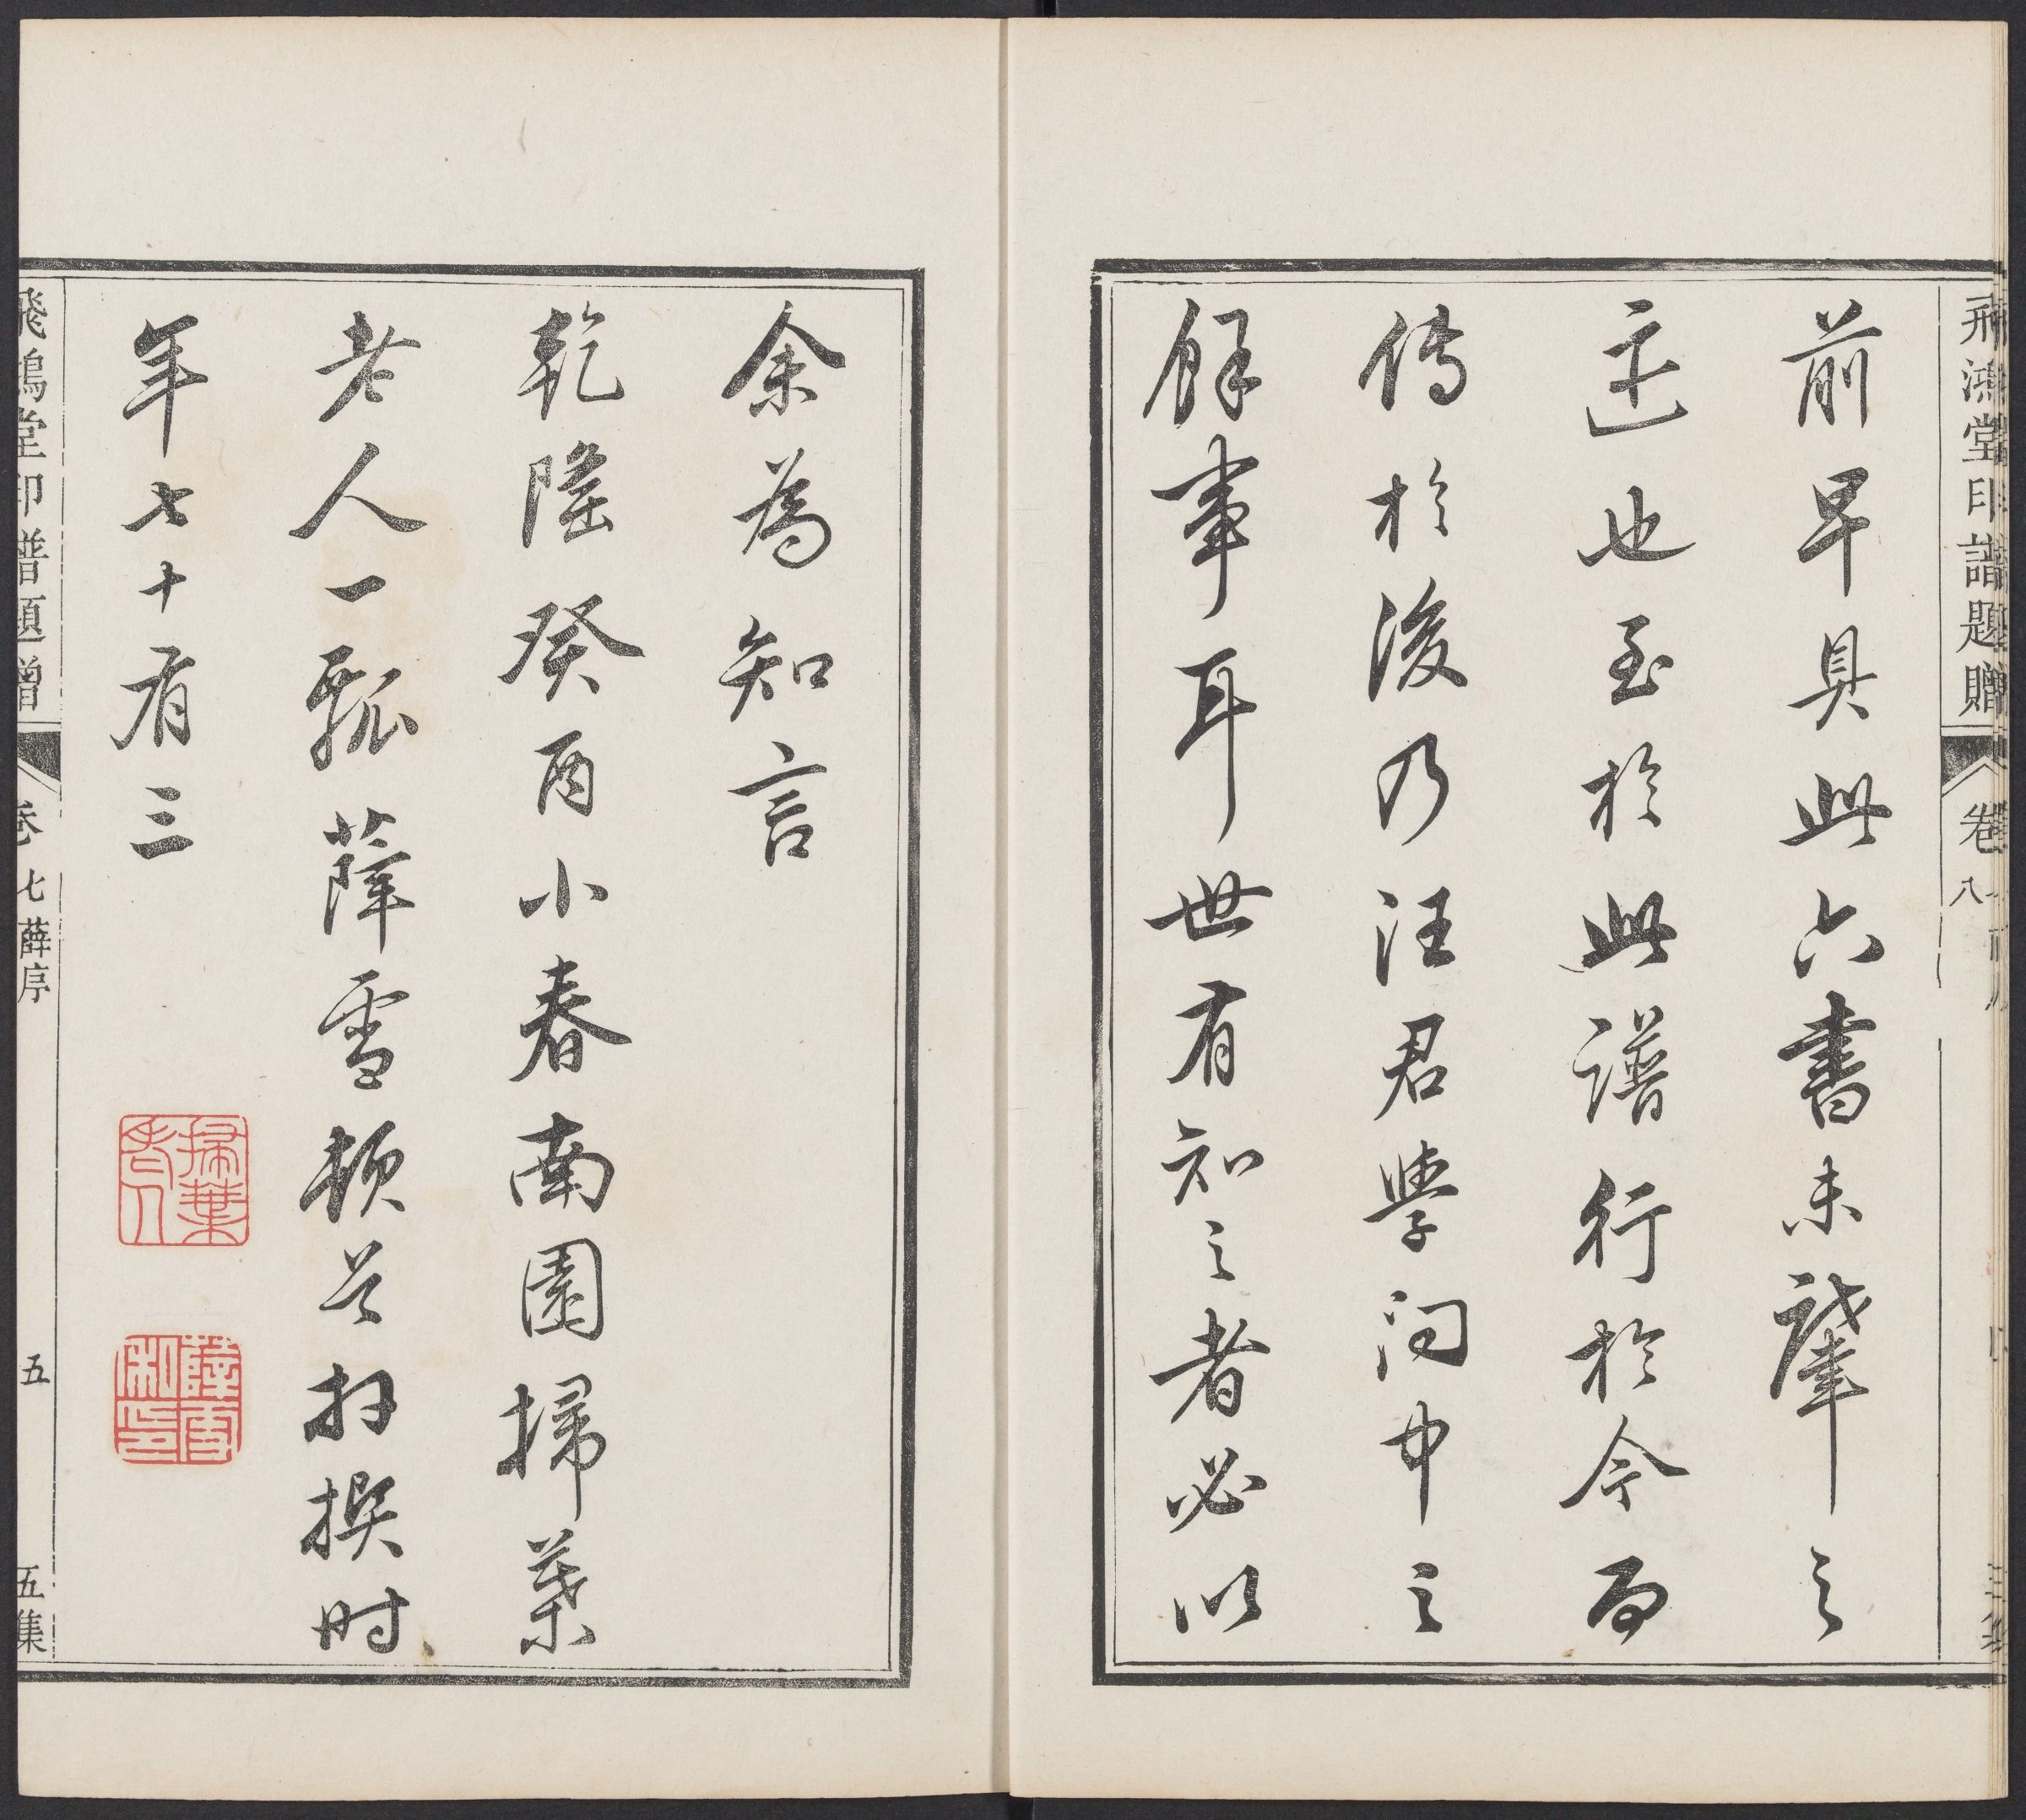 飛鴻堂印譜題贈 卷八
前早具此六書未肇之
迹也至於此譜行於今而
傳於後乃汪君學问中之
餘事耳世有知之者必以
余為知言
乾隆癸酉小春南園掃葉
老人一瓢薛雪頓首拜撰时
年七十有三
掃葉老人
薛雪私印
飛鴻堂印譜題贈 卷七 薛序 五 五集